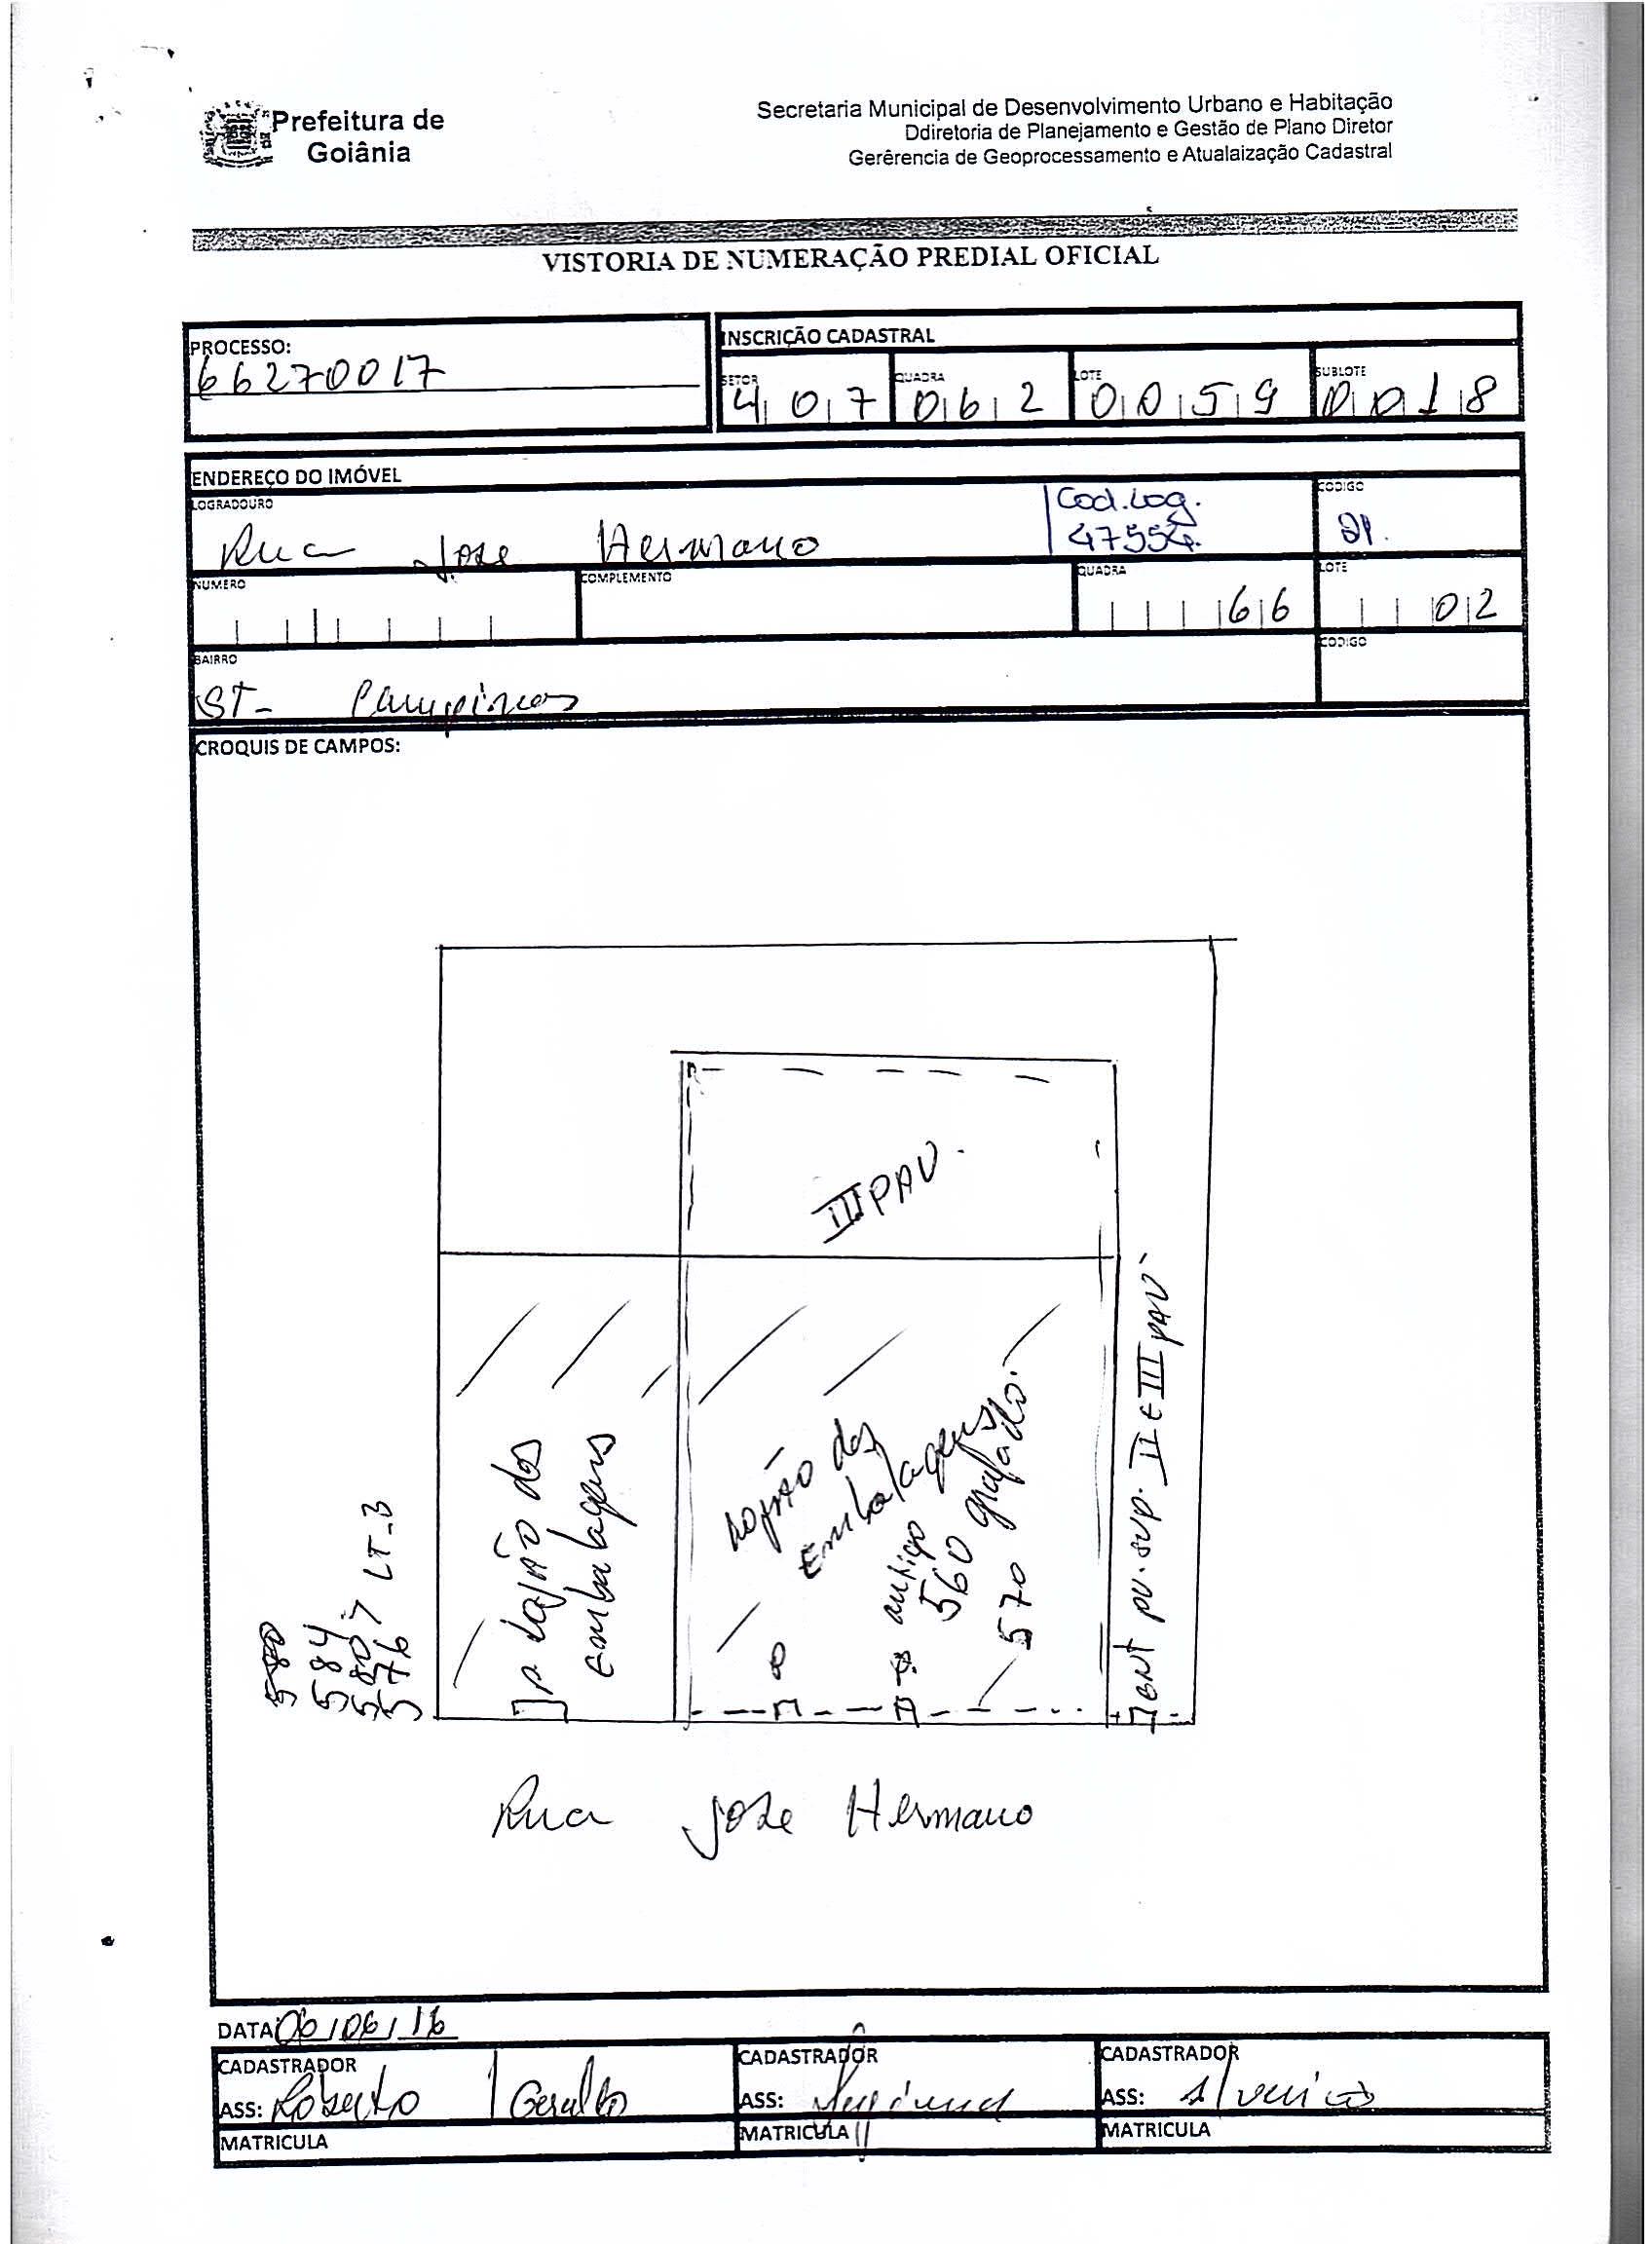 Prefeitura de
Goiânia
Secretaria Municipal de Desenvolvimento Urbano e Habitação
Ddiretoria de Planejamento e Gestão de Plano Diretor
Gerêrencia de Geoprocessamento e Atualaização Cadastral
VISTORIA DE NUMERAÇÃO PREDIAL OFICIAL
PROCESSO:
66270017
INSCRIÇÃO CADASTRAL
SETOR QUADRA LOTE SUBLOTE
407 062 0059 0018
ENDEREÇO DO IMÓVEL
LOGRADOURO
Rua Jose Hermano
Cod. Log.
47554.
CODIGO
NUMERO
COMPLEMENTO
QUADRA
66
LOTE
02
BAIRRO
ST- Campinas
CODIGO
CROQUIS DE CAMPOS:
III PAV.
Lojão das
embalagens
Lojão das
Embalagens
antigo
560
570 grafado.
ent pv. sup. II E III PAV
580
584
580
576 > LT-3
Rua Jose Hermano
DATA: 06/06/16
CADASTRADOR
ASS: Roberto / Geraldo
MATRICULA
CADASTRADOR
ASS:
MATRICULA
CADASTRADOR
ASS:
MATRICULA